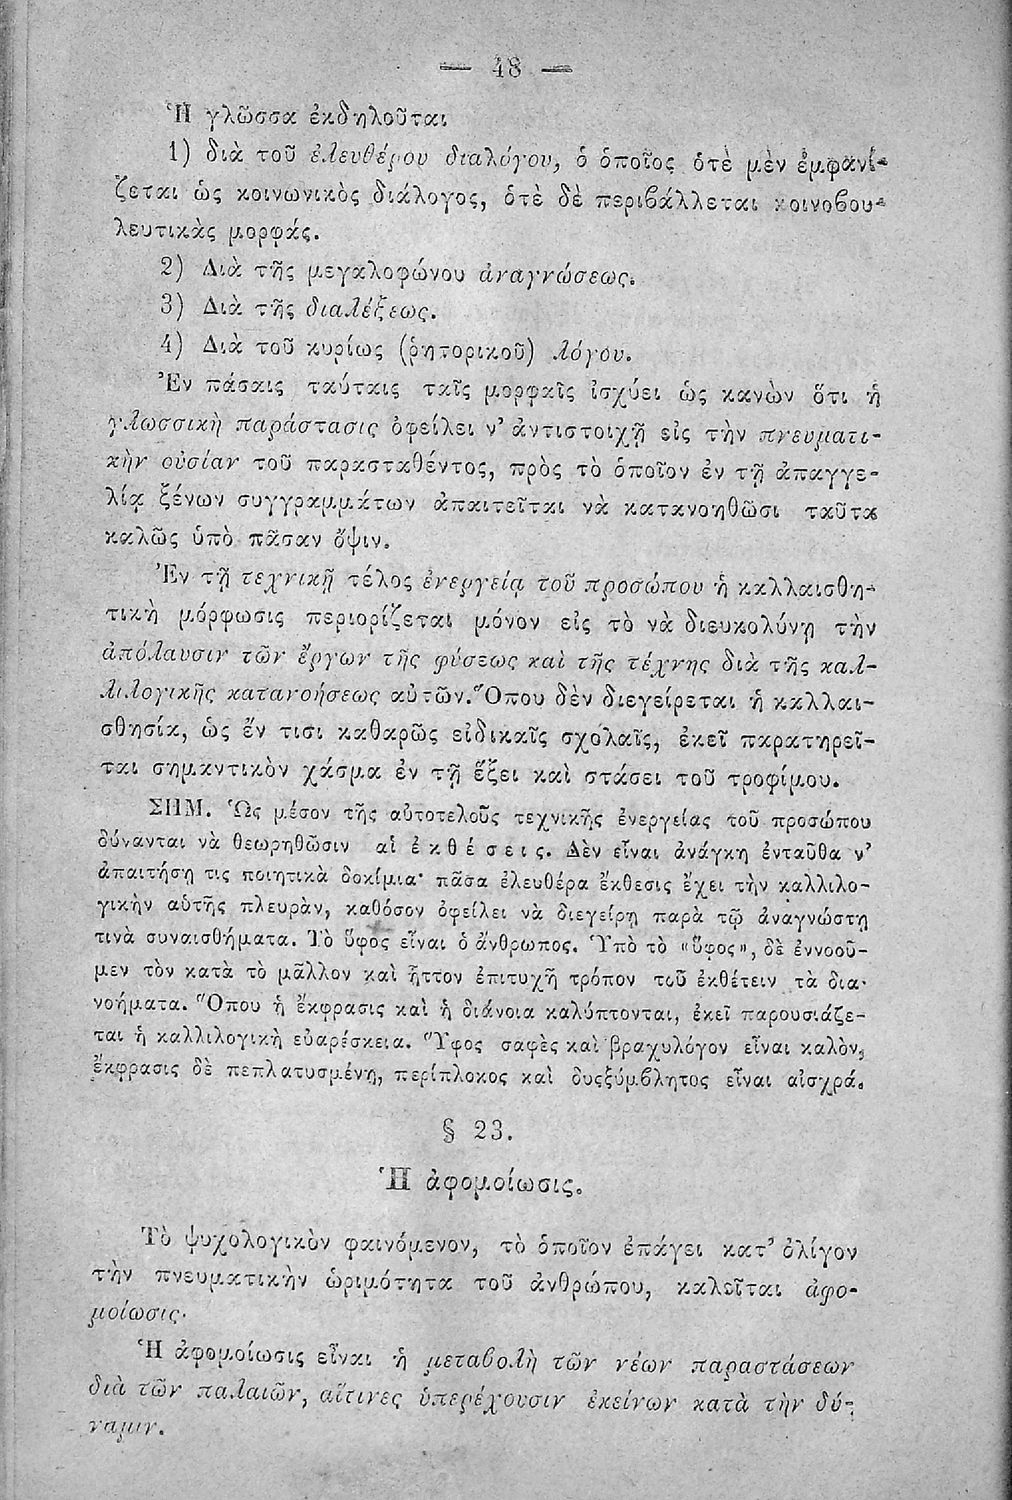 — 48 —
Ἡ γλῶσσα ἐκδηλοῦται
1) διὰ τοῦ ἐλευθέρου διαλόγου, ὁ ὁποῖος ὁτὲ μὲν ἐμφανί-
ζεται ὡς κοινωνικὸς διάλογος, ὁτὲ δὲ περιβάλλεται κοινοβου-
λευτικὰς μορφάς.
2) Διὰ τῆς μεγαλοφώνου ἀναγνώσεως.
3) Διὰ τῆς διαλέξεως.
4) Διὰ τοῦ κυρίως (ῥητορικοῦ) λόγου.
Ἐν πάσαις ταύταις ταῖς μορφαῖς ἰσχύει ὡς κανὼν ὅτι ἡ
γλωσσικὴ παράστασις ὀφείλει ν’ ἀντιστοιχῇ εἰς τὴν πνευματι-
κὴν οὐσίαν τοῦ παρασταθέντος, πρὸς τὸ ὁποῖον ἐν τῇ ἀπαγγε-
λίᾳ ξένων συγγραμμάτων ἀπαιτεῖται νὰ κατανοηθῶσι ταῦτα
καλῶς ὑπὸ πᾶσαν ὄψιν.
Ἐν τῇ τεχνικῇ τέλος ἐνεργείᾳ τοῦ προσώπου ἡ καλλαισθη-
τικὴ μόρφωσις περιορίζεται μόνον εἰς τὸ νὰ διευκολύνῃ τὴν
ἀπόλαυσιν τῶν ἔργων τῆς φύσεως καὶ τῆς τέχνης διὰ τῆς καλ-
λιλογικῆς κατανοήσεως αὐτῶν. Ὅπου δὲν διεγείρεται ἡ καλλαι-
σθησία, ὡς ἔν τισι καθαρῶς εἰδικαῖς σχολαῖς, ἐκεῖ παρατηρεῖ-
ται σημαντικὸν χάσμα ἐν τῇ ἕξει καὶ στάσει τοῦ τροφίμου.
ΣΗΜ. Ὡς μέσον τῆς αὐτοτελοῦς τεχνικῆς ἐνεργείας τοῦ προσώπου
δύνανται νὰ θεωρηθῶσιν αἱ ἐκθέσεις. Δὲν εἶναι ἀνάγκη ἐνταῦθα ν’
ἀπαιτήσῃ τις ποιητικὰ δοκίμια· πᾶσα ἐλευθέρα ἔκθεσις ἔχει τὴν καλλιλο-
γικὴν αὑτῆς πλευράν, καθόσον ὀφείλει νὰ διεγείρῃ παρὰ τῷ ἀναγνώστῃ
τινὰ συναισθήματα. Τὸ ὕφος εἶναι ὁ ἄνθρωπος. Ὑπὸ τὸ «ὕφος», δὲ ἐννοοῦ-
μεν τὸν κατὰ τὸ μᾶλλον καὶ ἧττον ἐπιτυχῆ τρόπον τοῦ ἐκθέτειν τὰ δια-
νοήματα. Ὅπου ἡ ἔκφρασις καὶ ἡ διάνοια καλύπτονται, ἐκεῖ παρουσιάζε-
ται ἡ καλλιλογικὴ εὐαρέσκεια. Ὕφος σαφὲς καὶ βραχυλόγον εἶναι καλόν,
ἔκφρασις δὲ πεπλατυσμένη, περίπλοκος καὶ δυςξύμβλητος εἶναι αἰσχρά.
§ 23.
Ἡ ἀφομοίωσις.
Τὸ ψυχολογικὸν φαινόμενον, τὸ ὁποῖον ἐπάγει κατ’ ὀλίγον
τὴν πνευματικὴν ὡριμότητα τοῦ ἀνθρώπου, καλεῖται ἀφο-
μοίωσις.
Ἡ ἀφομοίωσις εἶναι ἡ μεταβολὴ τῶν νέων παραστάσεων
διὰ τῶν παλαιῶν, αἵτινες ὑπερέχουσιν ἐκείνων κατὰ τὴν δύ-
ναμιν.